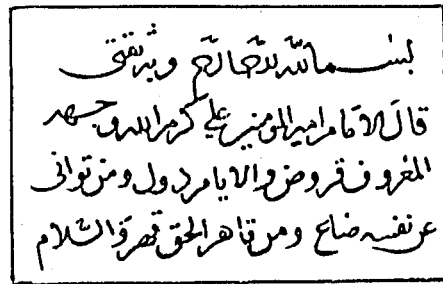 بسم الله الرحمن الرحيم وبه ثقتي
قال الامام امير المومنين علي كرم الله وجهه
المعروف قروض والايام دول ومن توانى
عن نفسه ضاع ومن قاهر الحق قهر والسلام